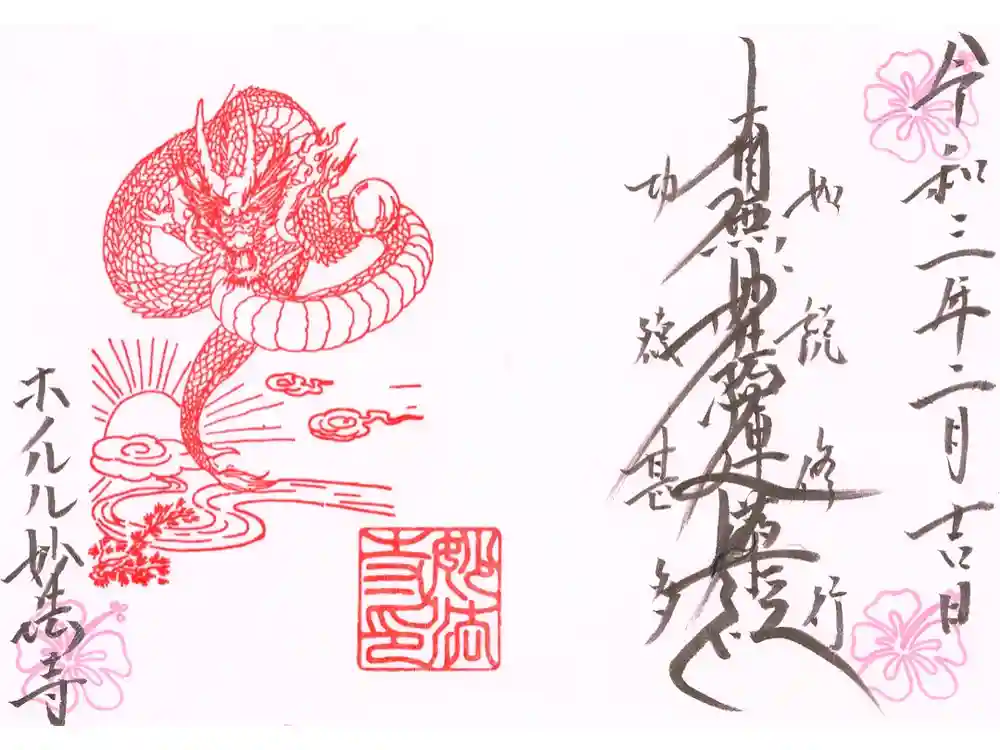 令和三年二月吉日
如説修行
南無妙法蓮華経
功徳甚多
妙法寺印
ホノルル妙法寺